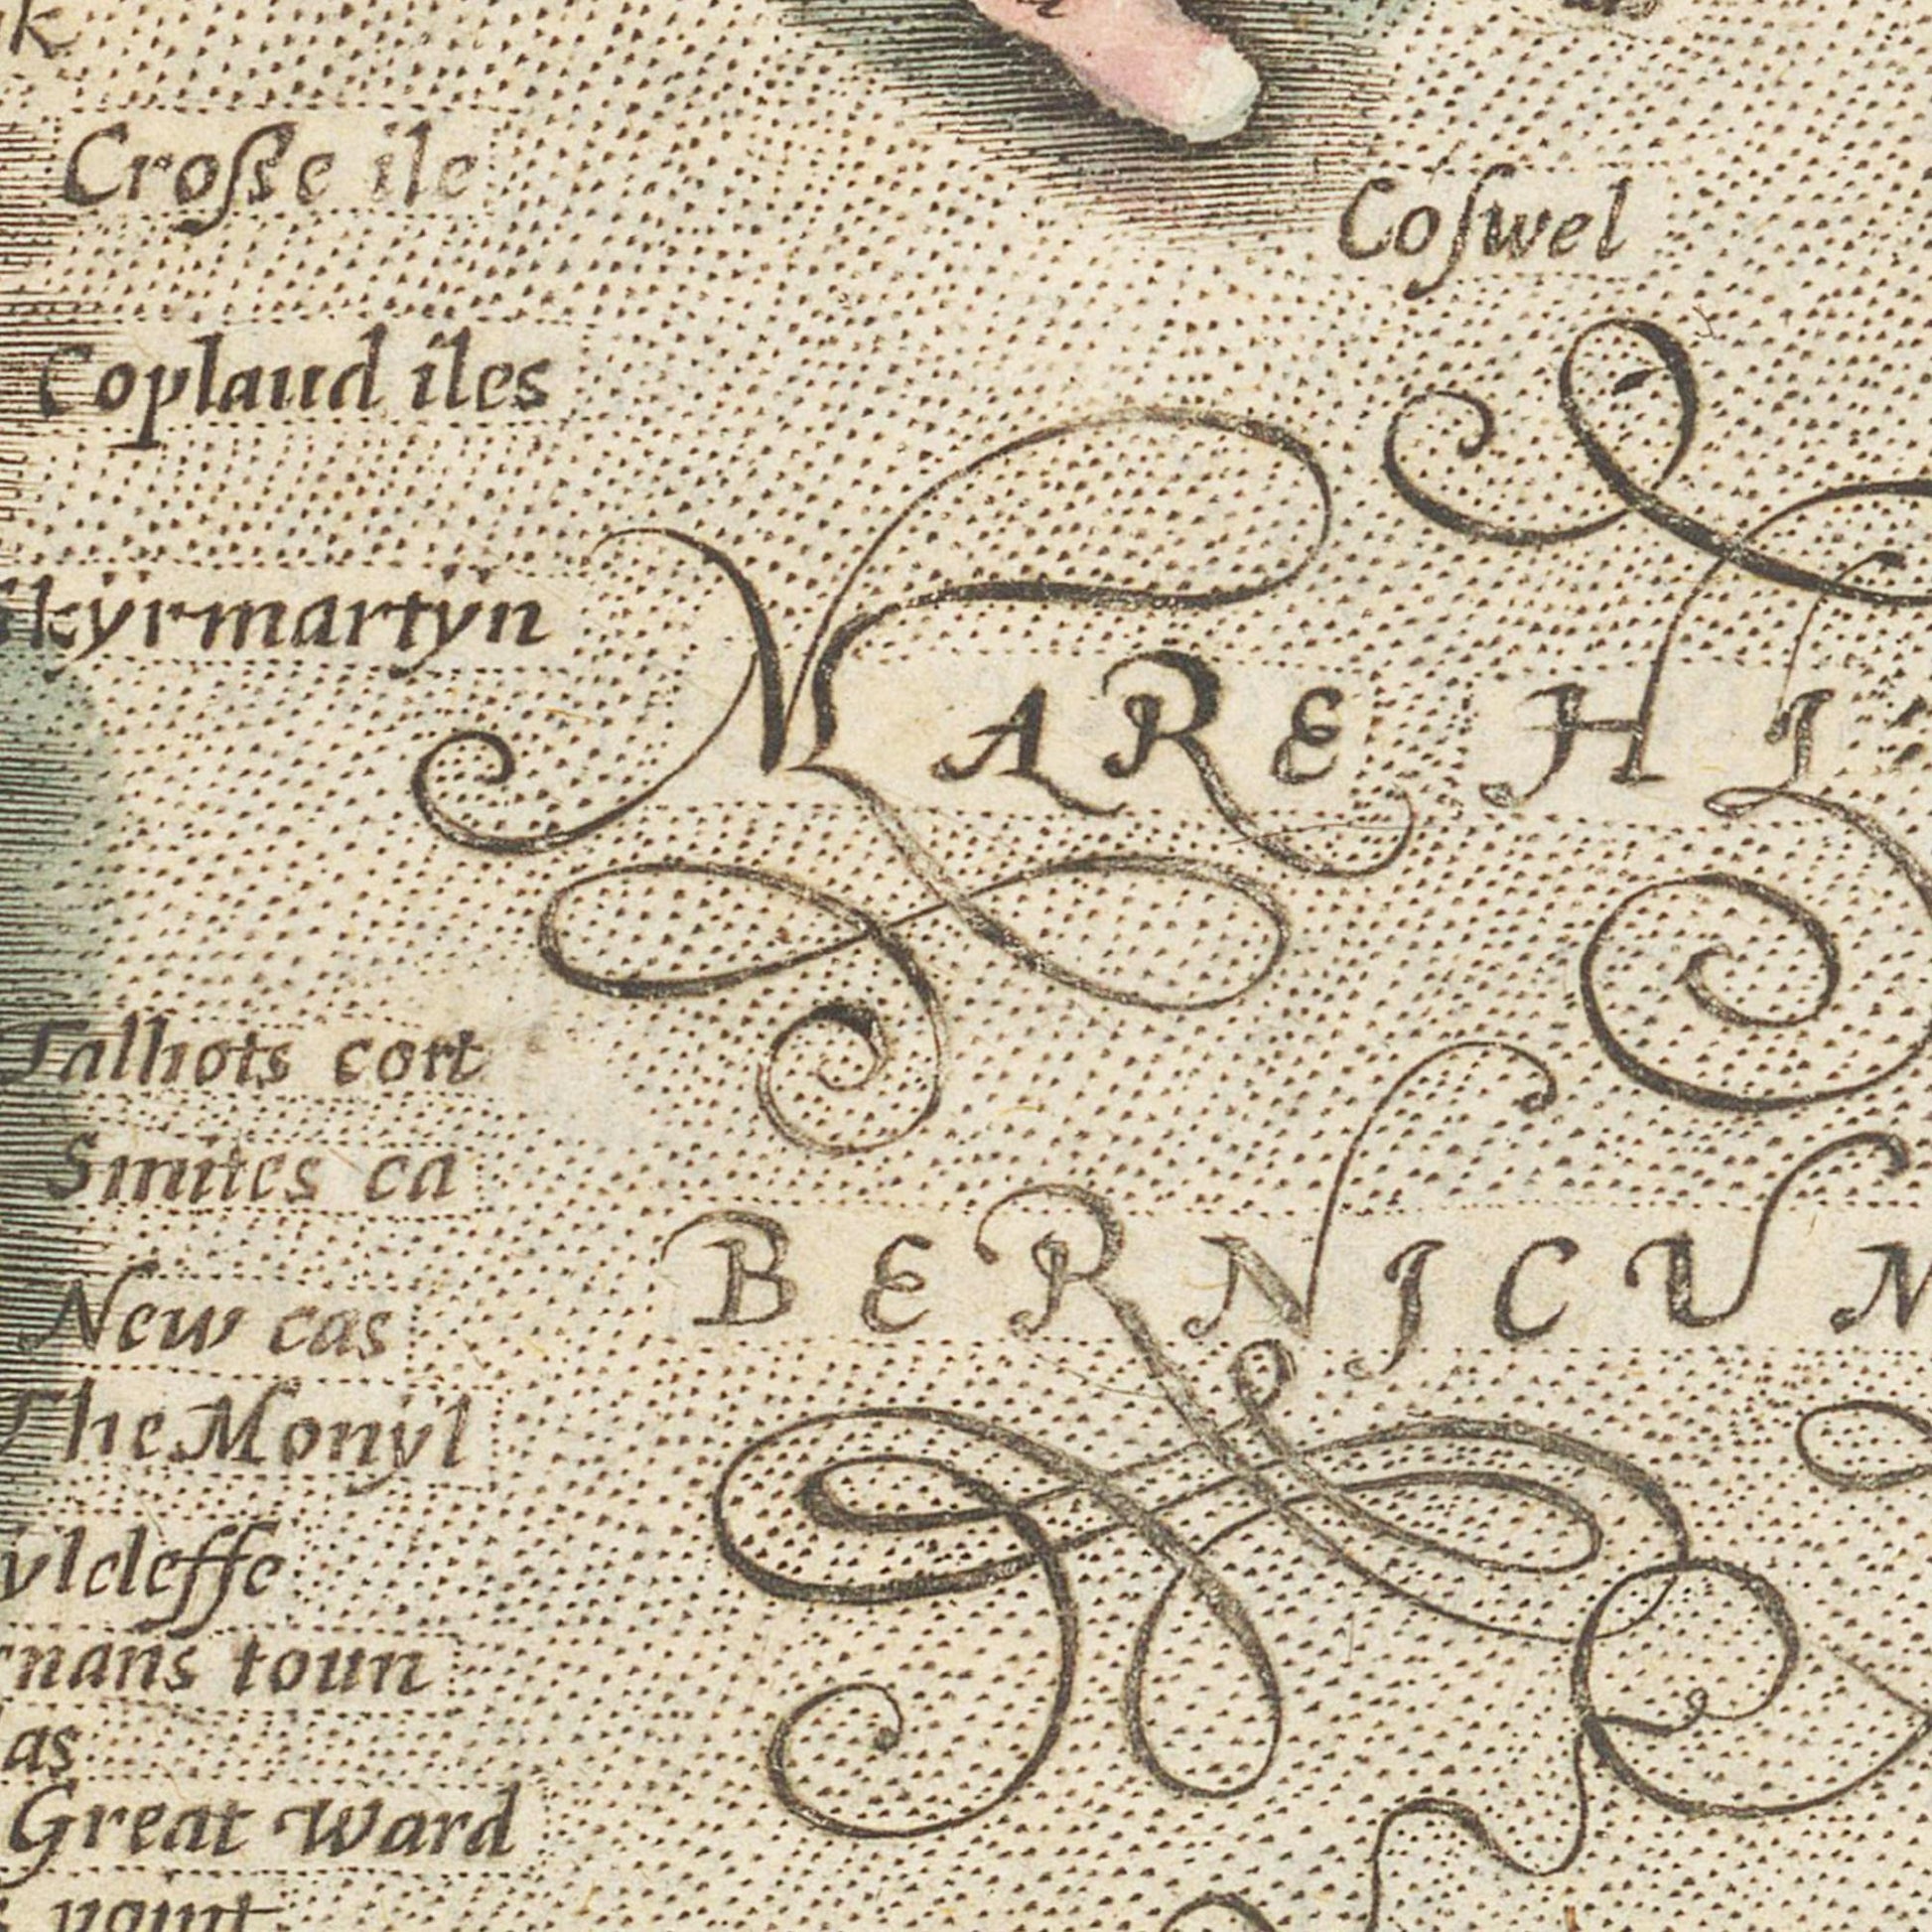 Croſse ile
Coſwel
Coplaud iles
Skÿrmartÿn
MARE HI
Talhots cort
Smites ca
BERNICUM
New cas
The Monÿl
ylcleffe
mans toun
las
Great Ward
point